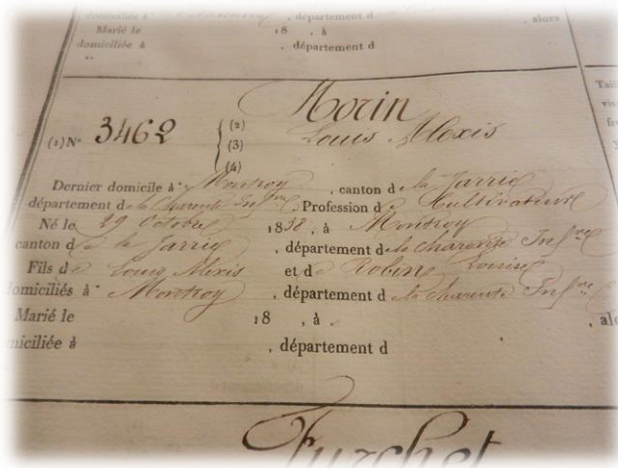 domiciliés à , département d , alors
Marié le 18 , à
domiciliée à , département d
Morin
(1) N° 3462 { (2) Louis Alexis
(3)
(4)
Dernier domicile à Montroy , canton de la Jarrie
département de la Charente Infre. Profession de Cultivateur
Né le 29 Octobre 1838, à Montroy
canton de la Jarrie , département de la Charente Infre
Fils de Louis Alexis et de Robin Louise
domiciliés à Montroy , département de la Charente Infre
Marié le 18 , à , alo
miciliée à , département d
Furchet